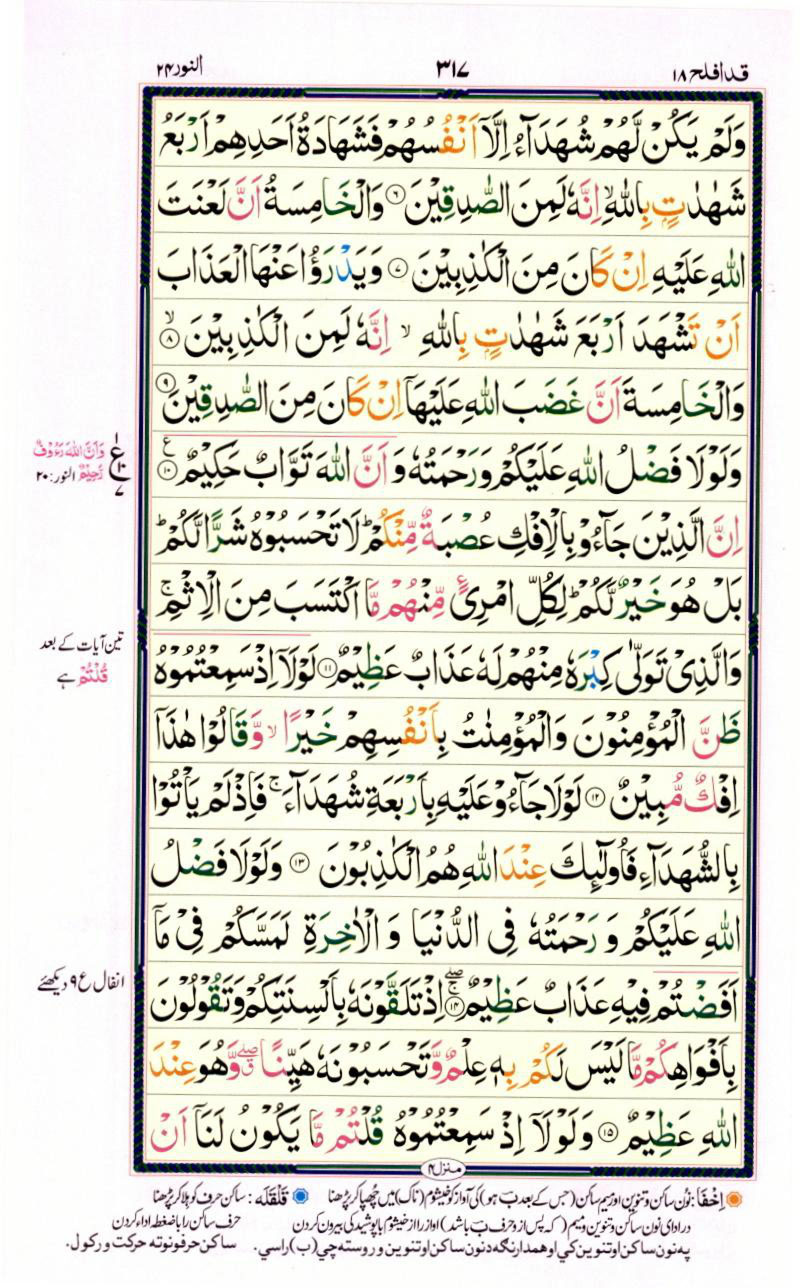 قد افلح ١٨
٣١٧
النور ٢۴
وَلَمْ يَكُنْ لَّهُمْ شُهَدَآءُ اِلَّاۤ اَنْفُسُهُمْ فَشَهَادَةُ اَحَدِهِمْ اَرْبَعُ
شَهٰدٰتٍۭ بِاللّٰهِ ۙ اِنَّهٗ لَمِنَ الصّٰدِقِيْنَ ۝۶ وَالْخَامِسَةُ اَنَّ لَعْنَتَ
اللّٰهِ عَلَيْهِ اِنْ كَانَ مِنَ الْكٰذِبِيْنَ ۝۷ وَيَدْرَؤُا عَنْهَا الْعَذَابَ
اَنْ تَشْهَدَ اَرْبَعَ شَهٰدٰتٍۭ بِاللّٰهِ ۙ اِنَّهٗ لَمِنَ الْكٰذِبِيْنَ ۙ۝۸
وَالْخَامِسَةَ اَنَّ غَضَبَ اللّٰهِ عَلَيْهَاۤ اِنْ كَانَ مِنَ الصّٰدِقِيْنَ ۝۹
وَلَوْلَا فَضْلُ اللّٰهِ عَلَيْكُمْ وَرَحْمَتُهٗ وَاَنَّ اللّٰهَ تَوَّابٌ حَكِيْمٌ ۝۱۰ع
اِنَّ الَّذِيْنَ جَآءُوْ بِالْاِفْكِ عُصْبَةٌ مِّنْكُمْ ؕ لَا تَحْسَبُوْهُ شَرًّا لَّكُمْ ؕ
بَلْ هُوَ خَيْرٌ لَّكُمْ ؕ لِكُلِّ امْرِئٍ مِّنْهُمْ مَّا اكْتَسَبَ مِنَ الْاِثْمِ ۚ
وَالَّذِيْ تَوَلّٰى كِبْرَهٗ مِنْهُمْ لَهٗ عَذَابٌ عَظِيْمٌ ۝۱۱ لَوْلَاۤ اِذْ سَمِعْتُمُوْهُ
ظَنَّ الْمُؤْمِنُوْنَ وَالْمُؤْمِنٰتُ بِاَنْفُسِهِمْ خَيْرًا ۙ وَّقَالُوْا هٰذَاۤ
اِفْكٌ مُّبِيْنٌ ۝۱۲ لَوْلَا جَآءُوْ عَلَيْهِ بِاَرْبَعَةِ شُهَدَآءَ ۚ فَاِذْ لَمْ يَاْتُوْا
بِالشُّهَدَآءِ فَاُولٰٓئِكَ عِنْدَ اللّٰهِ هُمُ الْكٰذِبُوْنَ ۝۱۳ وَلَوْلَا فَضْلُ
اللّٰهِ عَلَيْكُمْ وَرَحْمَتُهٗ فِي الدُّنْيَا وَالْاٰخِرَةِ لَمَسَّكُمْ فِيْ مَاۤ
اَفَضْتُمْ فِيْهِ عَذَابٌ عَظِيْمٌ ۚۖ۝۱۴ اِذْ تَلَقَّوْنَهٗ بِاَلْسِنَتِكُمْ وَتَقُوْلُوْنَ
بِاَفْوَاهِكُمْ مَّا لَيْسَ لَكُمْ بِهٖ عِلْمٌ وَّتَحْسَبُوْنَهٗ هَيِّنًا ۖۗ وَّهُوَ عِنْدَ
اللّٰهِ عَظِيْمٌ ۝۱۵ وَلَوْلَاۤ اِذْ سَمِعْتُمُوْهُ قُلْتُمْ مَّا يَكُوْنُ لَنَاۤ اَنْ
منزل ۴
ع ۱۰ ۷
وَاَنَّ اللّٰهَ رَءُوْفٌ
رَّحِيْمٌ النور: ۲۰
تین آیات کے بعد
قُلْتُمْ ہے
انفال ع ۹ دیکھئے
اِخفَا: نُون ساکن و تنوین اور میم ساکن (جس کے بعد ب ہو) کی آواز کو خیشوم (ناک) میں چھپا کر پڑھنا
در ادای نون ساکن و تنوین و میم (که پس از و حرف ب باشد) آواز را از خیشوم با پوشیدگی بیرون کردن
په نون ساکن او تنوین کي او همدارنګه د نون ساکن او تنوین وروسته چي (ب) راسي.
قَلْقَلَه: ساکن حرف کو ہلا کر پڑھنا
حرف ساکن را با ضغط اداء کردن
ساکن حرفونو ته حرکت ورکول.